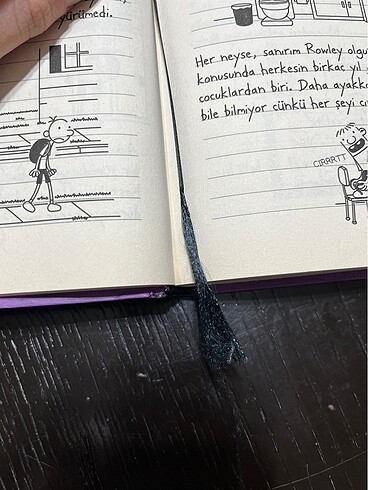 yürümedi.
Her neyse, sanırım Rowley olgu
konusunda herkesin birkaç yıl
çocuklardan biri. Daha ayakk
bile bilmiyor çünkü her şeyi cı
CIRRRTT